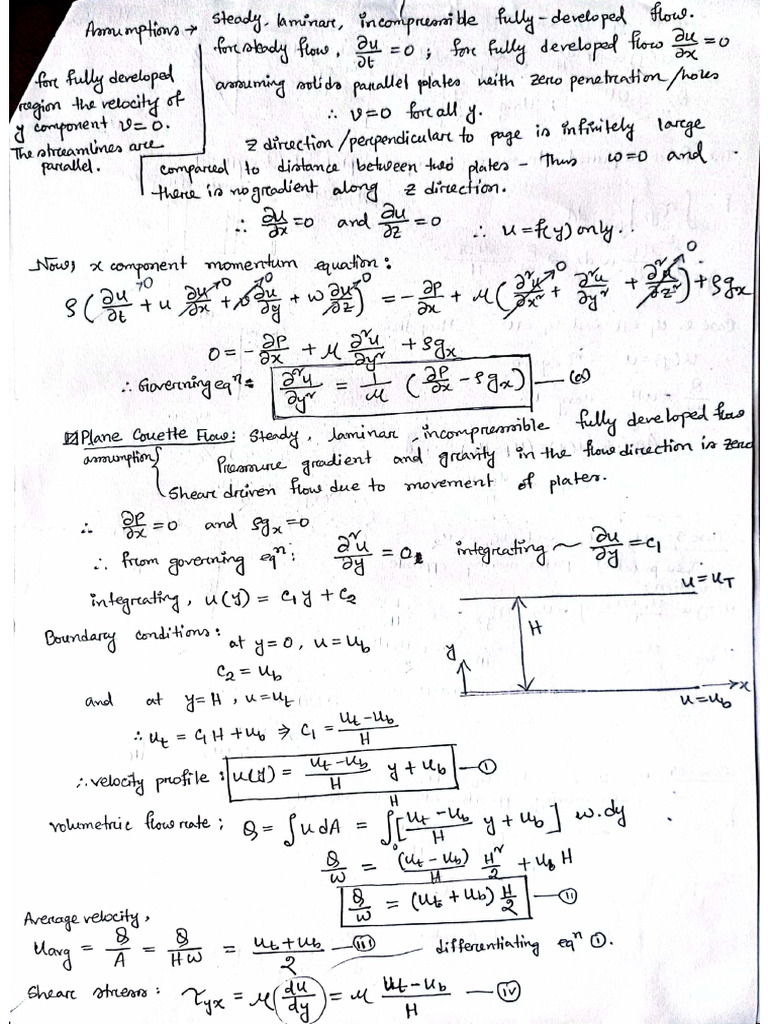 Assumptions → steady, laminar, incompressible fully-developed flow.
for steady flow, ∂u/∂t = 0 ; for fully developed flow ∂u/∂x = 0
assuming solids parallel plates with zero penetration/holes
∴ v=0 for all y.
for fully developed
region the velocity of
y component v=0.
The streamlines are
parallel.
z direction/perpendicular to page is infinitely large
compared to distance between two plates - Thus w=0 and
there is no gradient along z direction.
∴ ∂u/∂x = 0 and ∂u/∂z = 0 ∴ u = f(y) only.
Now, x component momentum equation:
ρ(∂u/∂t→0 + u ∂u/∂x→0 + v ∂u/∂y→0 + w ∂u/∂z→0) = -∂P/∂x + μ(∂²u/∂x²→0 + ∂²u/∂y² + ∂²u/∂z²→0) + ρgx
0 = -∂P/∂x + μ ∂²u/∂y² + ρgx
∴ Governing eqⁿ: ∂²u/∂y² = 1/μ (∂P/∂x - ρgx)
Plane Couette Flow: Steady, laminar, incompressible fully developed flow
assumption Pressure gradient and gravity in the flow direction is zero
Shear driven flow due to movement of plates.
∴ ∂P/∂x = 0 and ρgx = 0
∴ from governing eqⁿ: ∂²u/∂y = 0. integrating ~ ∂u/∂y = c1
integrating, u(y) = c1 y + c2
u = uT
H
y
x
u = ub
Boundary conditions: at y=0, u=ub
c2 = ub
and at y=H, u=ut
∴ ut = c1H + ub ⇒ c1 = (ut - ub)/H
∴ velocity profile: u(y) = (ut - ub)/H y + ub — (i)
volumetric flow rate; Q = ∫u dA = ∫₀ᴴ[(ut - ub)/H y + ub] w.dy
Q/w = (ut - ub)/H H²/2 + ub H
Q/w = (ut + ub) H/2 — (ii)
Average velocity,
uavg = Q/A = Q/Hw = (ut + ub)/2 — (iii) differentiating eqⁿ (i).
Shear stress: τyx = μ(du/dy) = μ (ut - ub)/H — (iv)